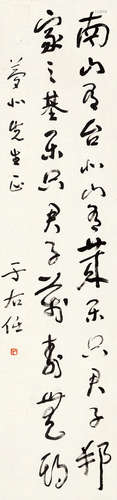 南山有台北山有莱乐只君子邦
家之基乐只君子万寿无期
梦北先生正
于右任